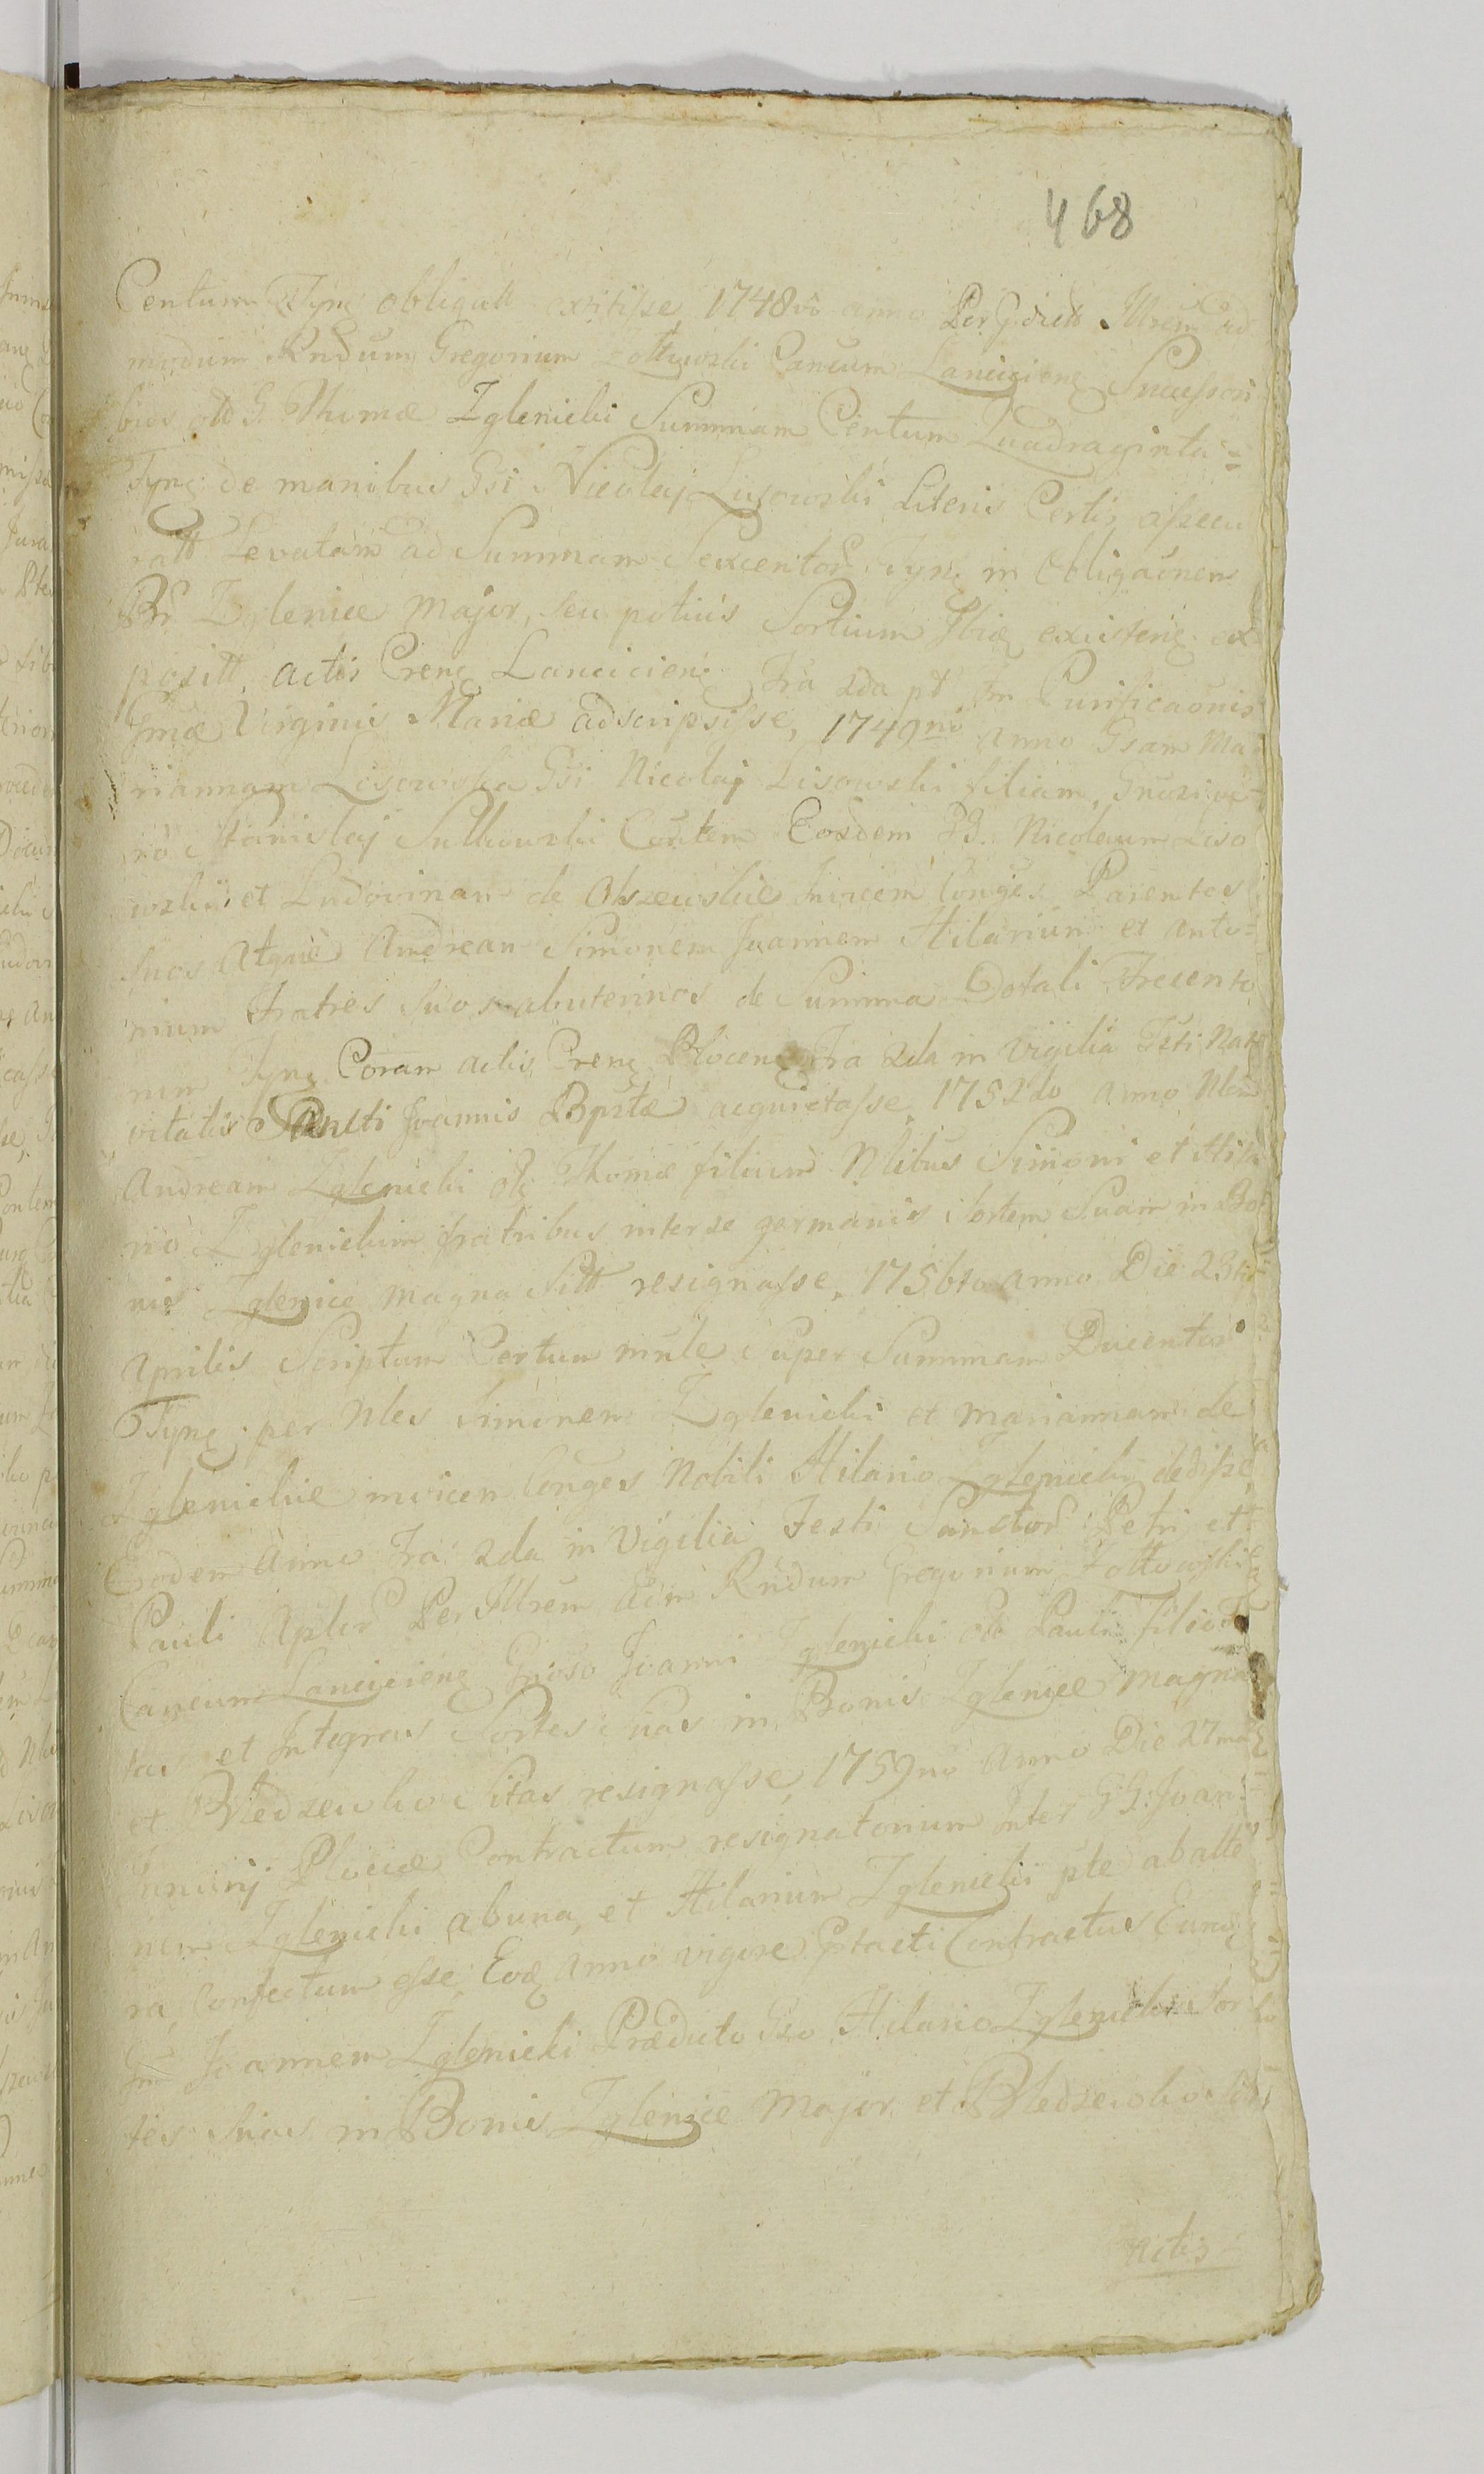 468
Centum Tyne obligatt extitisse, 1748vo anno Per Illrem ad
modum Rndum Gregorium Zottowski Cancum Lancicien Successori
bus olb G. Thomæ Zglenicki Summam Centum Quadraginta =
Tyne de manibus Gsi Nicolaj Lisowski Literis Certis assecu
ratt Levatam ad Summam Sexcentor Tyne in Obligaonem
Br Zglenice Major, seu potius Sortium Ibiq existene ex
positt, actis Crenẽ Lancicienẽ Fra 2da pt Fm Purificaonis
Smæ Virginis Mariæ adscripsisse, 1749no anno Gsam Ma
riannam Lisowska Gsi Nicolaj Lisowski filiam, Gnosi ve
ro Stanislaj Sulkowski Contem Eosdem GG. Nicolaum Liso
wski et Ludovinam de Olszewskie Invicem Conges Parentes
Suos Atque Andream Simonem Joannem Hilarium et Anto=
nium Fratres Suos abuterinos de Summa Dotali Trecento
rum Tyne Coram actis Crenẽ Plocenẽ Fra 2da in Vigilia Festi Nati
vitatis Sancti Joannis Bptæ acquietasse, 1752do Anno Nlem
Andream Zglenicki olb Thomæ filium Nlibus Simoni et Hila
rio Zglenickim fratribus inter se germanis Sortem Suam in Bo
nis Zglenice Magna Sitt resignasse, 1756to Anno Die 23tia
Aprilis Scriptum Certum mnle Super Summam Ducentor
Tyne per Nles Simonem Zglenicki et Mariannam de
Zglenickie invicem Conges Nobili Hilario Zglenicki dedisse,
Eodem Anno Fra 2da in Vigilia Festi Sanctor Petri et
Pauli Aplor Per Illrem Adm Rndum Gregorium Zottowski
Cancum Lancicienẽ Gnoso Joanni Zglenicki olb Pauli Filio To
tas et Integras Sortes Suas in Bonis Zglenice Magna
et Bledzewko Sitas resignasse, 1759no Anno Die 27ma
Juninj Plociæ Contractum resignatorium Inter GG: Joan
nem Zglenicki ab una, et Hilarium Zglenicki pte ab alte
ra Confectum esse, Eoq Anno vigore Ptacti Contractus Eund
Gm Joannem Zglenicki Prædicto Gso Hilario Zglenicki Sor
tes Suas in Bonis Zglenice Major et Bledzewko Sitt
Actis